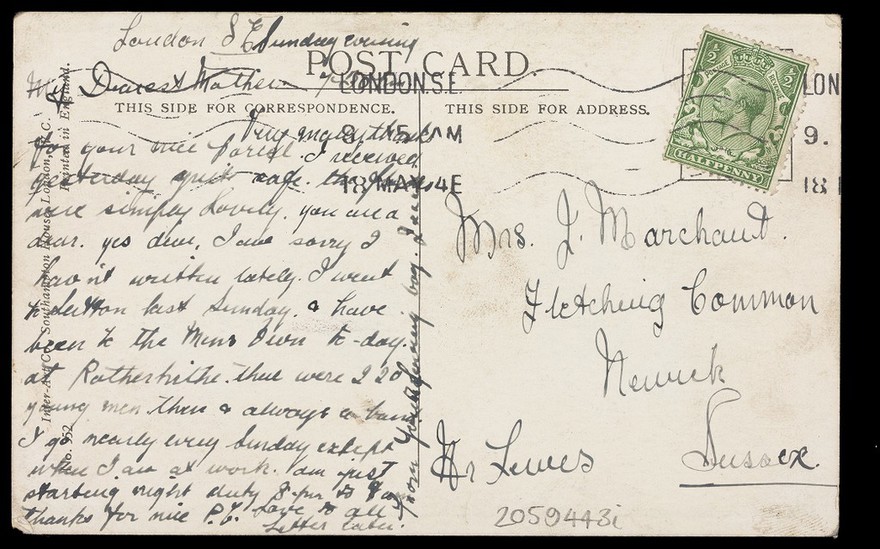 London S E Sunday evening
POST CARD.
My Dearest Mother
THIS SIDE FOR CORRESPONDENCE.
THIS SIDE FOR ADDRESS.
Very many thanks
for your nice parcel. I received
yesterday quite safe. the
were simply Lovely. you are a
dear. yes dear, I am sorry I
hav'nt written lately. I went
to Sutton last Sunday. & have
been to the Mens Own to-day.
at Rotherhithe. there were 220
young men there & always a band
I go nearly every Sunday except
when I am at work. am just
starting night duty 8 pm to 8 am
thanks for nice P.C. Love to all
Letter later.
from your loving boy.
LONDON.S.E.
9.15 PM
18 MAY 14 E
LON
9.
18 1
½
½
POSTAGE
REVENUE
HALFPENNY
Mrs. J. Marchant.
Fletching Common
Newick
Nr Lewes
Sussex.
2059443i
Inter-Art Co., Southampton House, London, W.C.
Printed in England.
No. 952